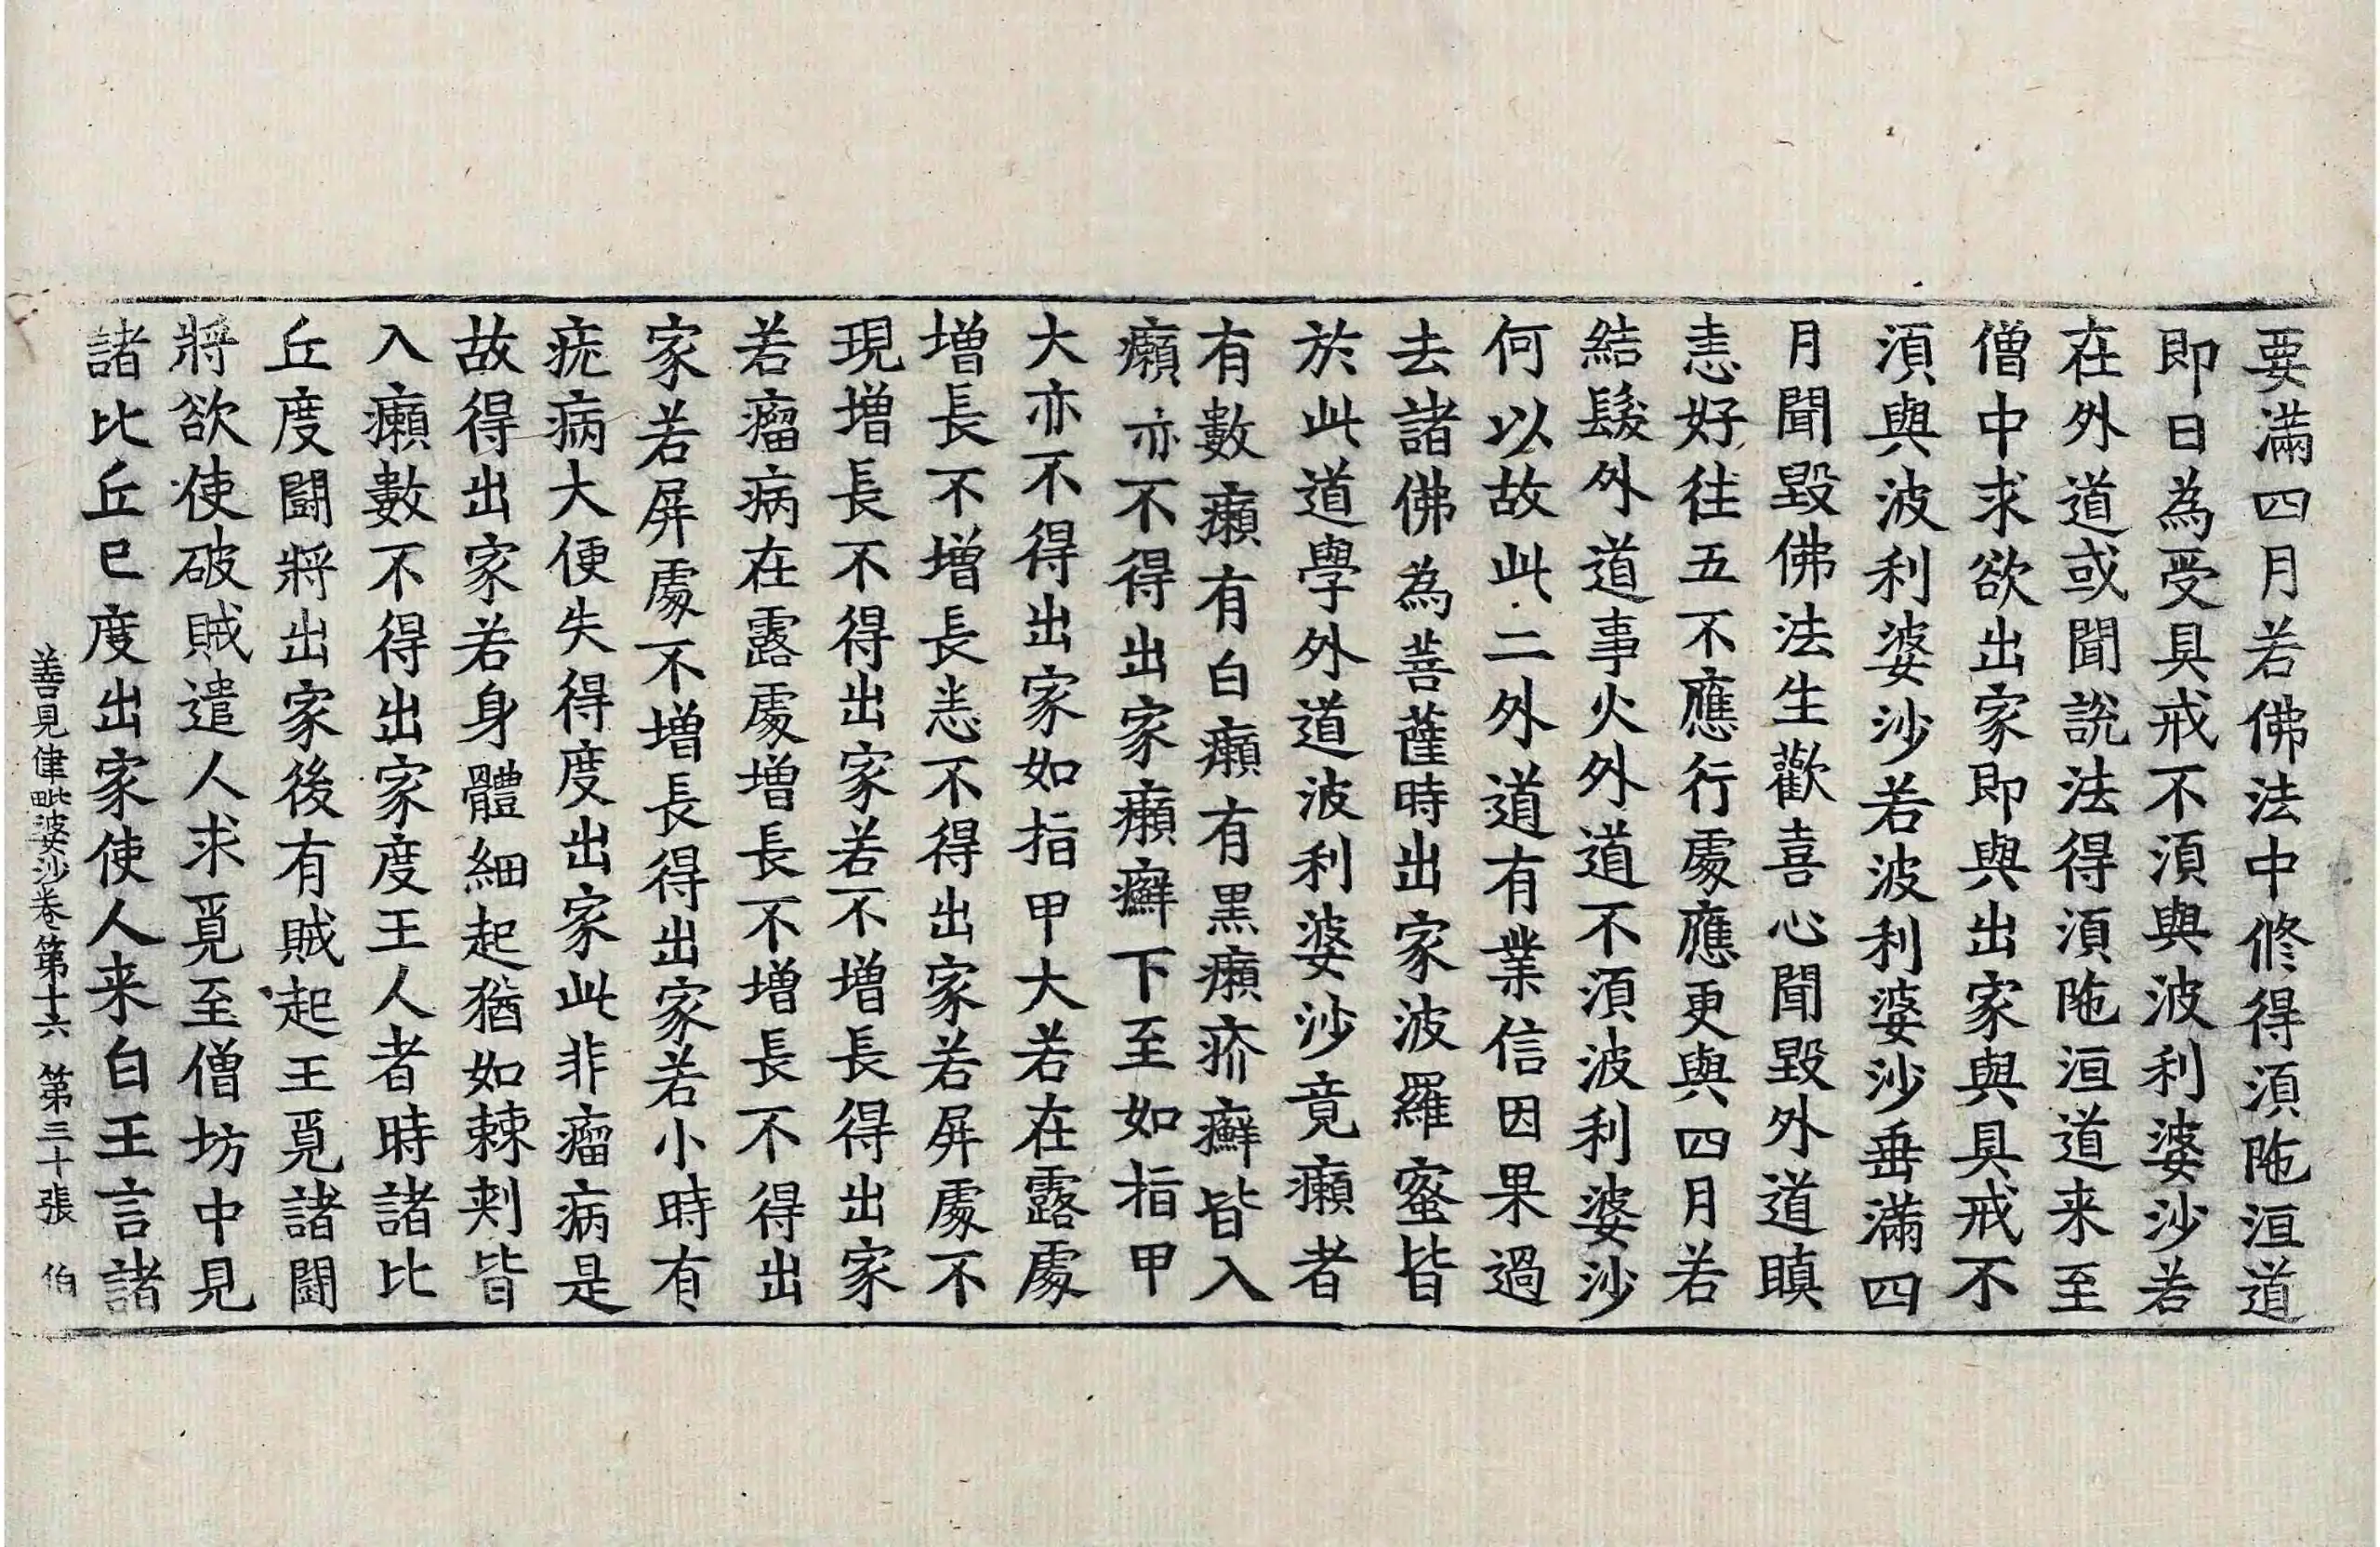 要滿四月若佛法中修得湏陁洹道
即日為受具戒不湏與波利婆沙若
在外道或聞說法得湏陁洹道来至
僧中求欲出家即與出家與具戒不
湏與波利婆沙若波利婆沙垂滿四
月聞毀佛法生歡喜心聞毀外道瞋
恚好往五不應行處應更與四月若
結髮外道事火外道不湏波利婆沙
何以故此二外道有業信因果過
去諸佛為菩薩時出家波羅蜜皆
於此道學外道波利婆沙竟癩者
有數癩有白癩有黑癩疥癬皆入
癩亦不得出家癩癬下至如指甲
大亦不得出家如指甲大若在露處
增長不增長悉不得出家若屏處不
現增長不得出家若不增長得出家
若瘤病在露處增長不增長不得出
家若屏處不增長得出家若小時有
疣病大便失得度出家此非瘤病是
故得出家若身體細起猶如棘刾皆
入癩數不得出家度王人者時諸比
丘度鬪將出家後有賊起王覓諸鬪
將欲使破賊遣人求覓至僧坊中見
諸比丘已度出家使人来白王言諸
善見律毗婆沙卷第十六 第三十張 伯